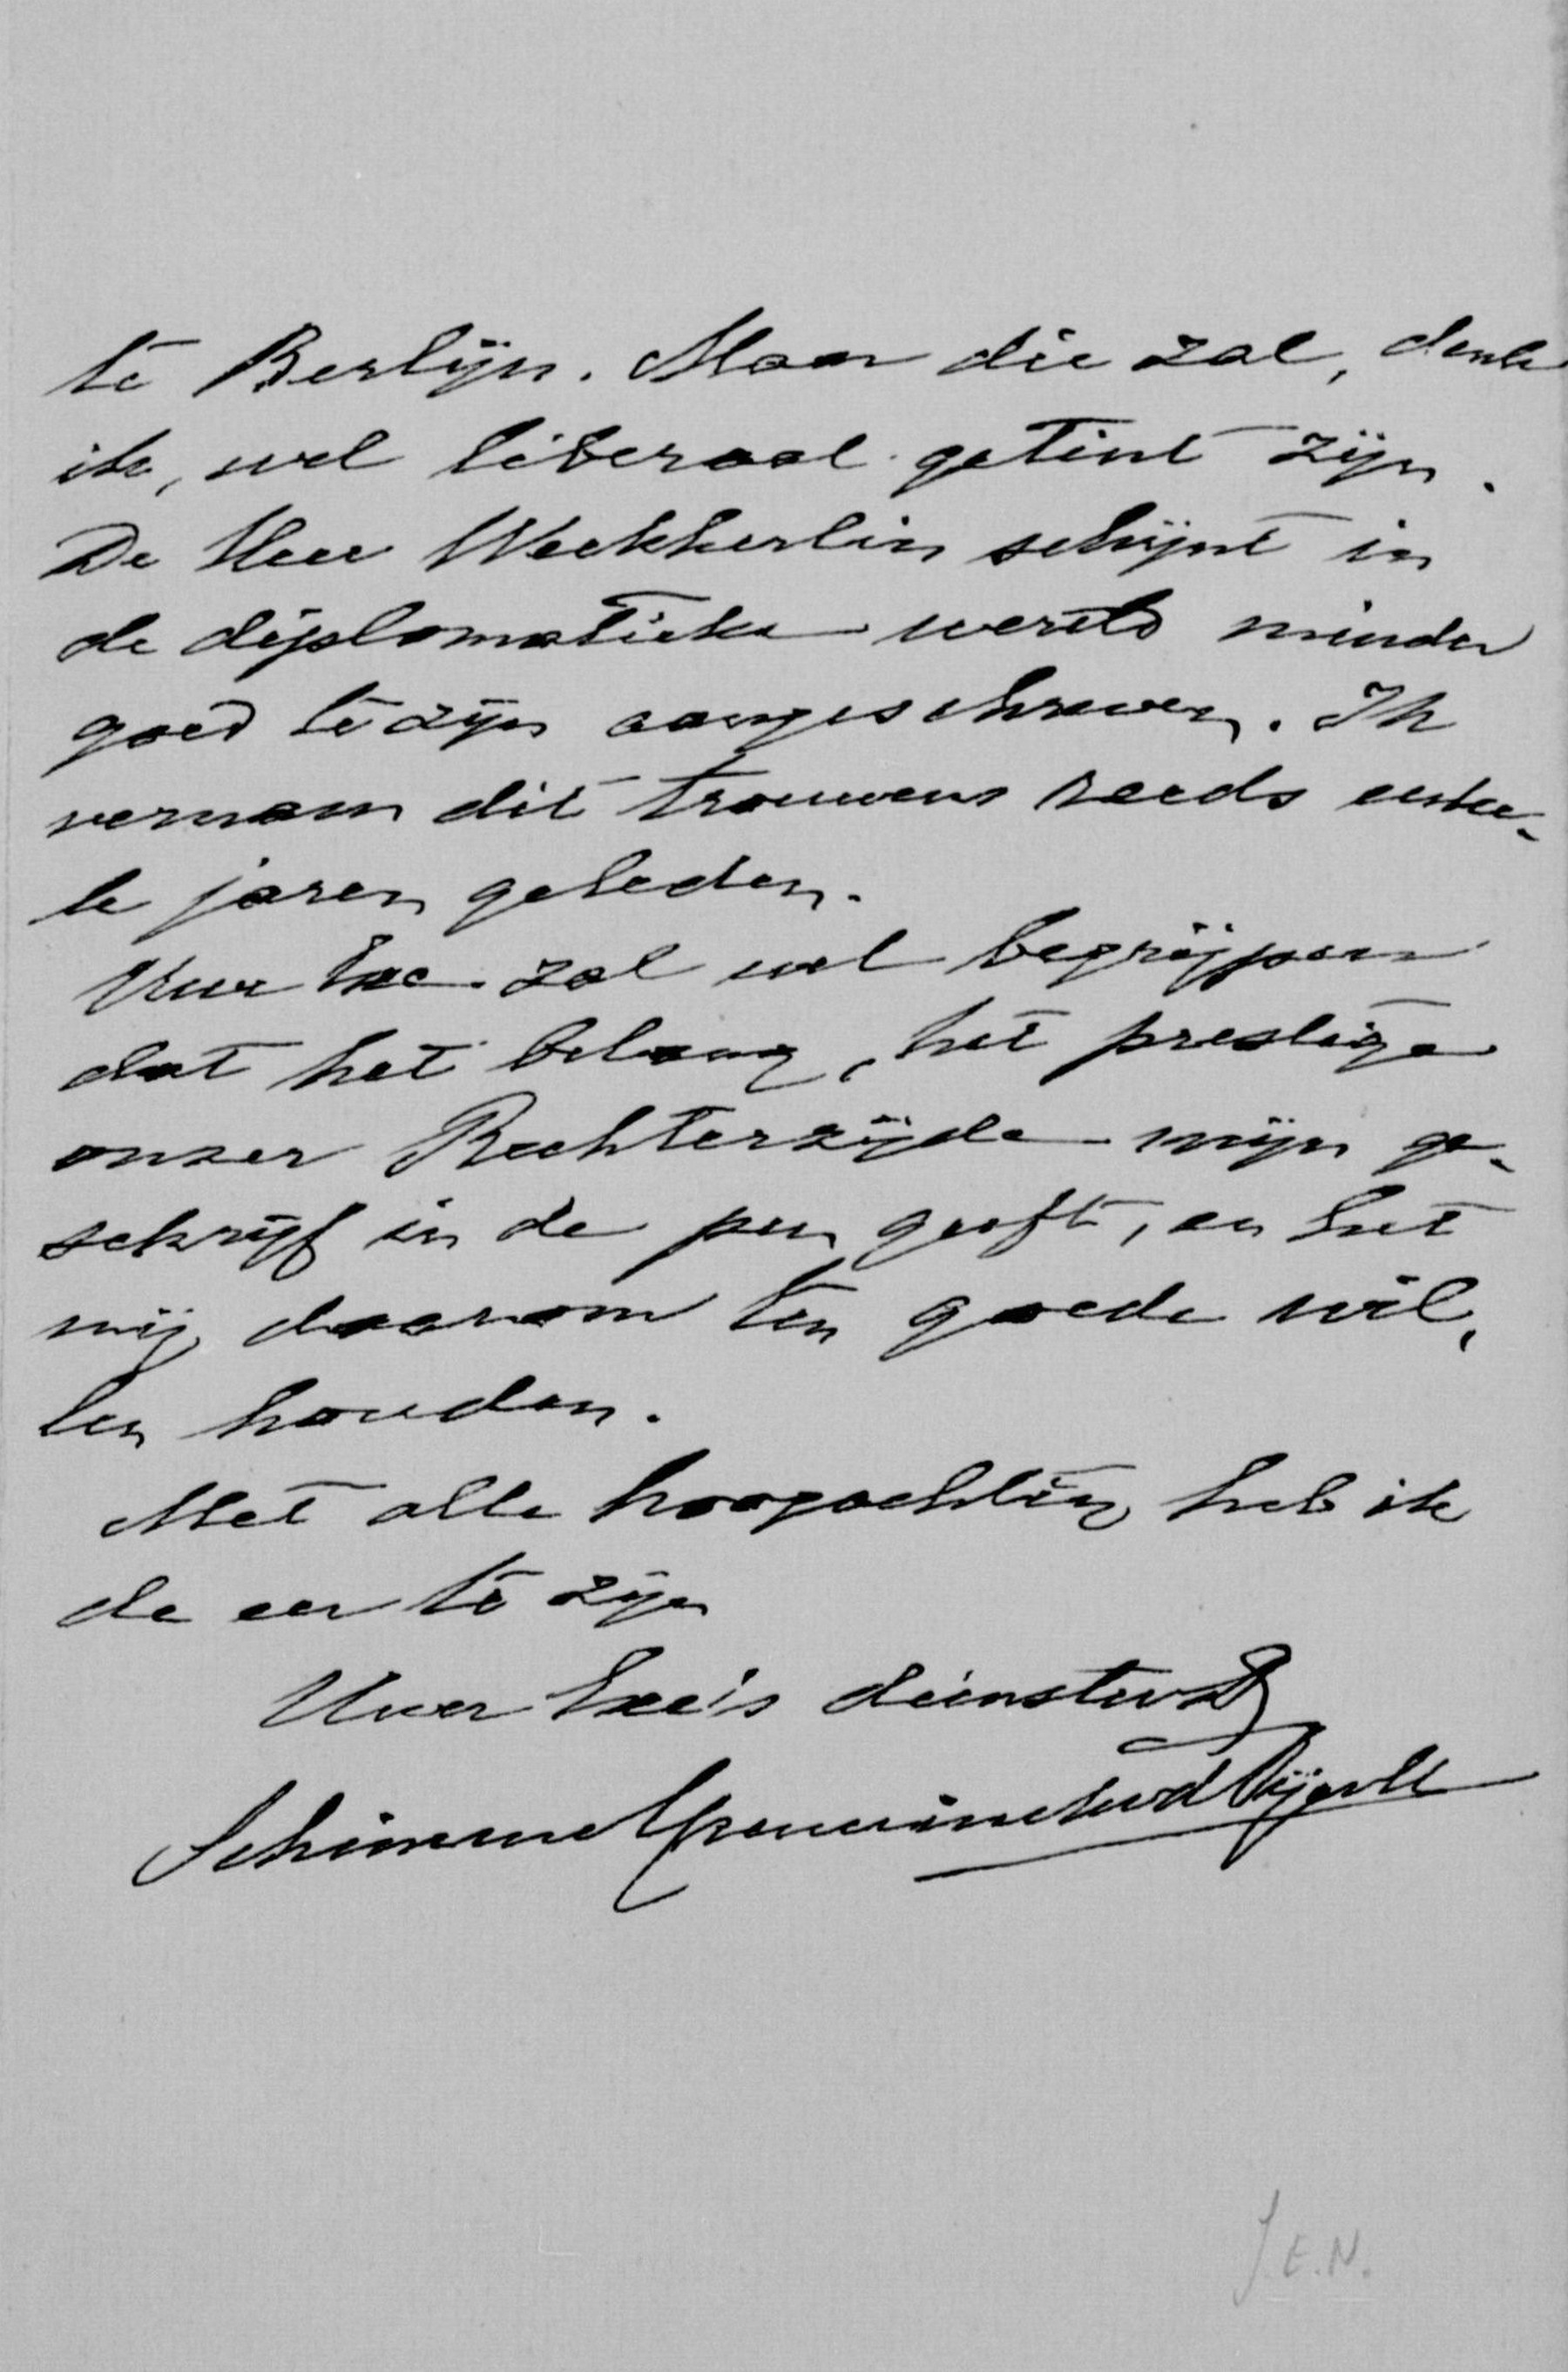 te Berlijn. Maar die zal, denk
ik, wel liberaal getint zijn.
De Heer Weckherlin schijnt in
de diplomatieke wereld minder
goed te zijn aangeschreven. Ik
vernam dit trouwens reeds enke-
le jaren geleden.
Uwe Exc. zal wel begrijpen
dat het belang, het prestige
onzer Rechterzijde mijn ge-
schrijf in de pen geeft, en het
mij daarom ten goede wil,
len houden.
Met alle hoogachting heb ik
de eer te zijn
Uwer Exc's dienstw
Schimmelpenninck vd Oijevll
J.E.N.